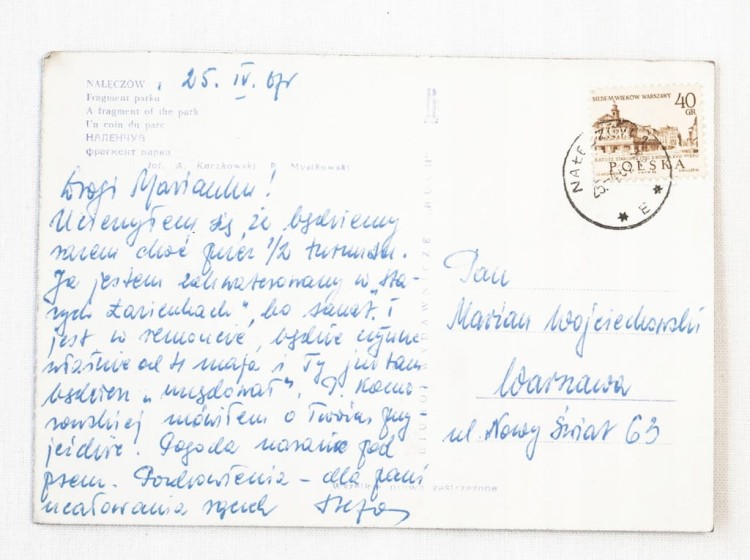 NAŁĘCZÓW, 25. IV. 67r
Fragment parku
A fragment of the park
Un coin du parc
НАЛЕНЧУВ
фрагмент парка
fot. A. Karczkowski R. Mystkowski
Drogi Marianku!
Ucieszyłem się, że będziemy
razem choć przez 1/2 turnusu.
Ja jestem zakwaterowany w „Sta-
rych Łazienkach", bo sanat. I
jest w remoncie, będzie czynne
właśnie od 4 maja i Ty już tam
będziesz „urzędował". P. Komo-
rowskiej mówiłem o Twoim przy-
jeździe. Pogoda na razie pod
psem. Pozdrowienia – dla pani
ucałowania rączek Stefan
SIEDEM WIEKÓW WARSZAWY
40
GR
POLSKA
NAŁĘCZÓW
E
Pan
Marian Wojciechowski
Warszawa
ul. Nowy Świat 63
BIURO WYDAWNICZE RUCH
Wszelkie prawa zastrzeżone